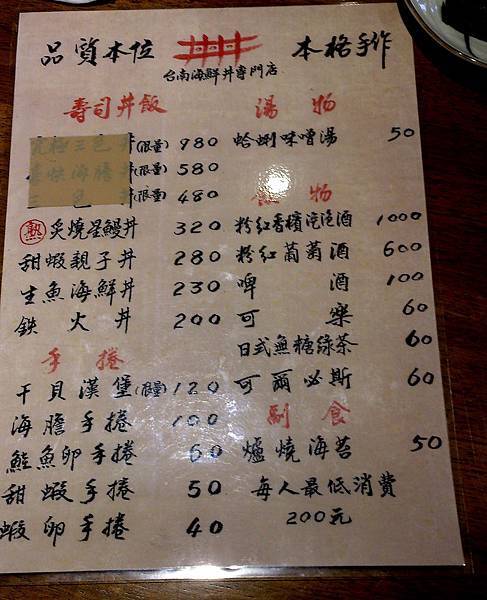 品質本位 丼丼 本格手作
台南海鮮丼專門店
壽司丼飯
究極三色丼(限量) 980
海膽丼(限量) 580
三色丼(限量) 480
熟 炙燒星鰻丼 320
甜蝦親子丼 280
生魚海鮮丼 230
鉄火丼 200
手捲
干貝漢堡(限量) 120
海膽手捲 100
鮭魚卵手捲 60
甜蝦手捲 50
蝦卵手捲 40
湯物
蛤蜊味噌湯 50
飲物
粉紅香檳泡泡酒 1000
粉紅葡萄酒 600
啤酒 100
可樂 60
日式無糖綠茶 60
可爾必斯 60
副食
爐燒海苔 50
每人最低消費
200元